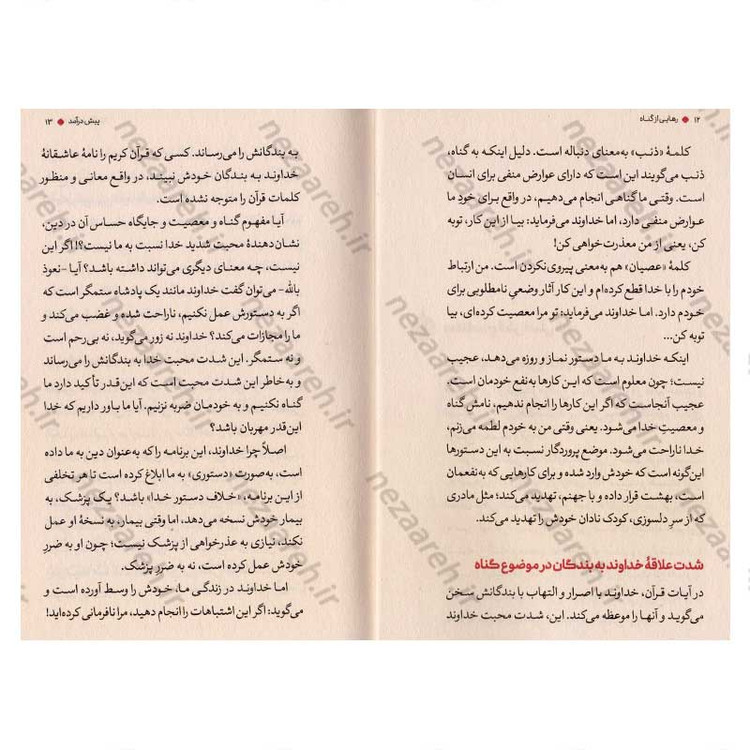 ۱۲ ● رهایی از گناه
کلمهٔ «ذنب» به‌معنای دنباله است. دلیل اینکه به گناه،
ذنب می‌گویند این است که دارای عوارض منفی برای انسان
است. وقتی ما گناهی انجام می‌دهیم، در واقع برای خودِ ما
عوارض منفی دارد، اما خداوند می‌فرماید: بیا از این کار، توبه
کن، یعنی از من معذرت‌خواهی کن!
کلمهٔ «عصیان» هم به‌معنی پیروی‌نکردن است. من ارتباط
خودم را با خدا قطع کرده‌ام و این کار آثار وضعیِ نامطلوبی برای
خودم دارد. اما خداوند می‌فرماید: تو مرا معصیت کرده‌ای، بیا
توبه کن...
اینکه خداوند به ما دستور نماز و روزه می‌دهد، عجیب
نیست؛ چون معلوم است که این کارها به‌نفع خودمان است.
عجیب آنجاست که اگر این کارها را انجام ندهیم، نامش گناه
و معصیتِ خدا می‌شود. یعنی وقتی من به خودم لطمه می‌زنم،
خدا ناراحت می‌شود. موضع پروردگار نسبت به این دستورها
این‌گونه است که خودش وارد شده و برای کارهایی که به‌نفعمان
است، بهشت قرار داده و با جهنم، تهدید می‌کند؛ مثل مادری
که از سرِ دلسوزی، کودک نادان خودش را تهدید می‌کند.
شدت علاقهٔ خداوند به بندگان در موضوع گناه
در آیات قرآن، خداوند با اصرار و التهاب با بندگانش سخن
می‌گوید و آنها را موعظه می‌کند. این، شدت محبت خداوند
پیش‌درآمد ● ۱۳
به بندگانش را می‌رساند. کسی که قرآن کریم را نامهٔ عاشقانهٔ
خداوند به بندگان خودش نبیند، در واقع معانی و منظور
کلمات قرآن را متوجه نشده است.
آیا مفهوم گناه و معصیت و جایگاه حساس آن در دین،
نشان‌دهندهٔ محبت شدید خدا نسبت به ما نیست؟! اگر این
نیست، چه معنای دیگری می‌تواند داشته باشد؟ آیا -نعوذ
بالله- می‌توان گفت خداوند مانند یک پادشاه ستمگر است که
اگر به دستورش عمل نکنیم، ناراحت شده و غضب می‌کند و
ما را مجازات می‌کند؟ خداوند نه زور می‌گوید، نه بی‌رحم است
و نه ستمگر. این شدت محبت خدا به بندگانش را می‌رساند
و به‌خاطر این شدت محبت است که این‌قدر تأکید دارد ما
گناه نکنیم و به خودمان ضربه نزنیم. آیا ما باور داریم که خدا
این‌قدر مهربان باشد؟
اصلاً چرا خداوند، این برنامه را که به‌عنوان دین به ما داده
است، به‌صورت «دستوری» به ما ابلاغ کرده است تا هر تخلفی
از این برنامه، «خلاف دستور خدا» باشد؟ یک پزشک، به
بیمار خودش نسخه می‌دهد، اما وقتی بیمار، به نسخهٔ او عمل
نکند، نیازی به عذرخواهی از پزشک نیست؛ چون او به ضررِ
خودش عمل کرده است، نه به ضررِ پزشک.
اما خداوند در زندگی ما، خودش را وسط آورده است و
می‌گوید: اگر این اشتباهات را انجام دهید، مرا نافرمانی کرده‌اید!
nezaareh.ir